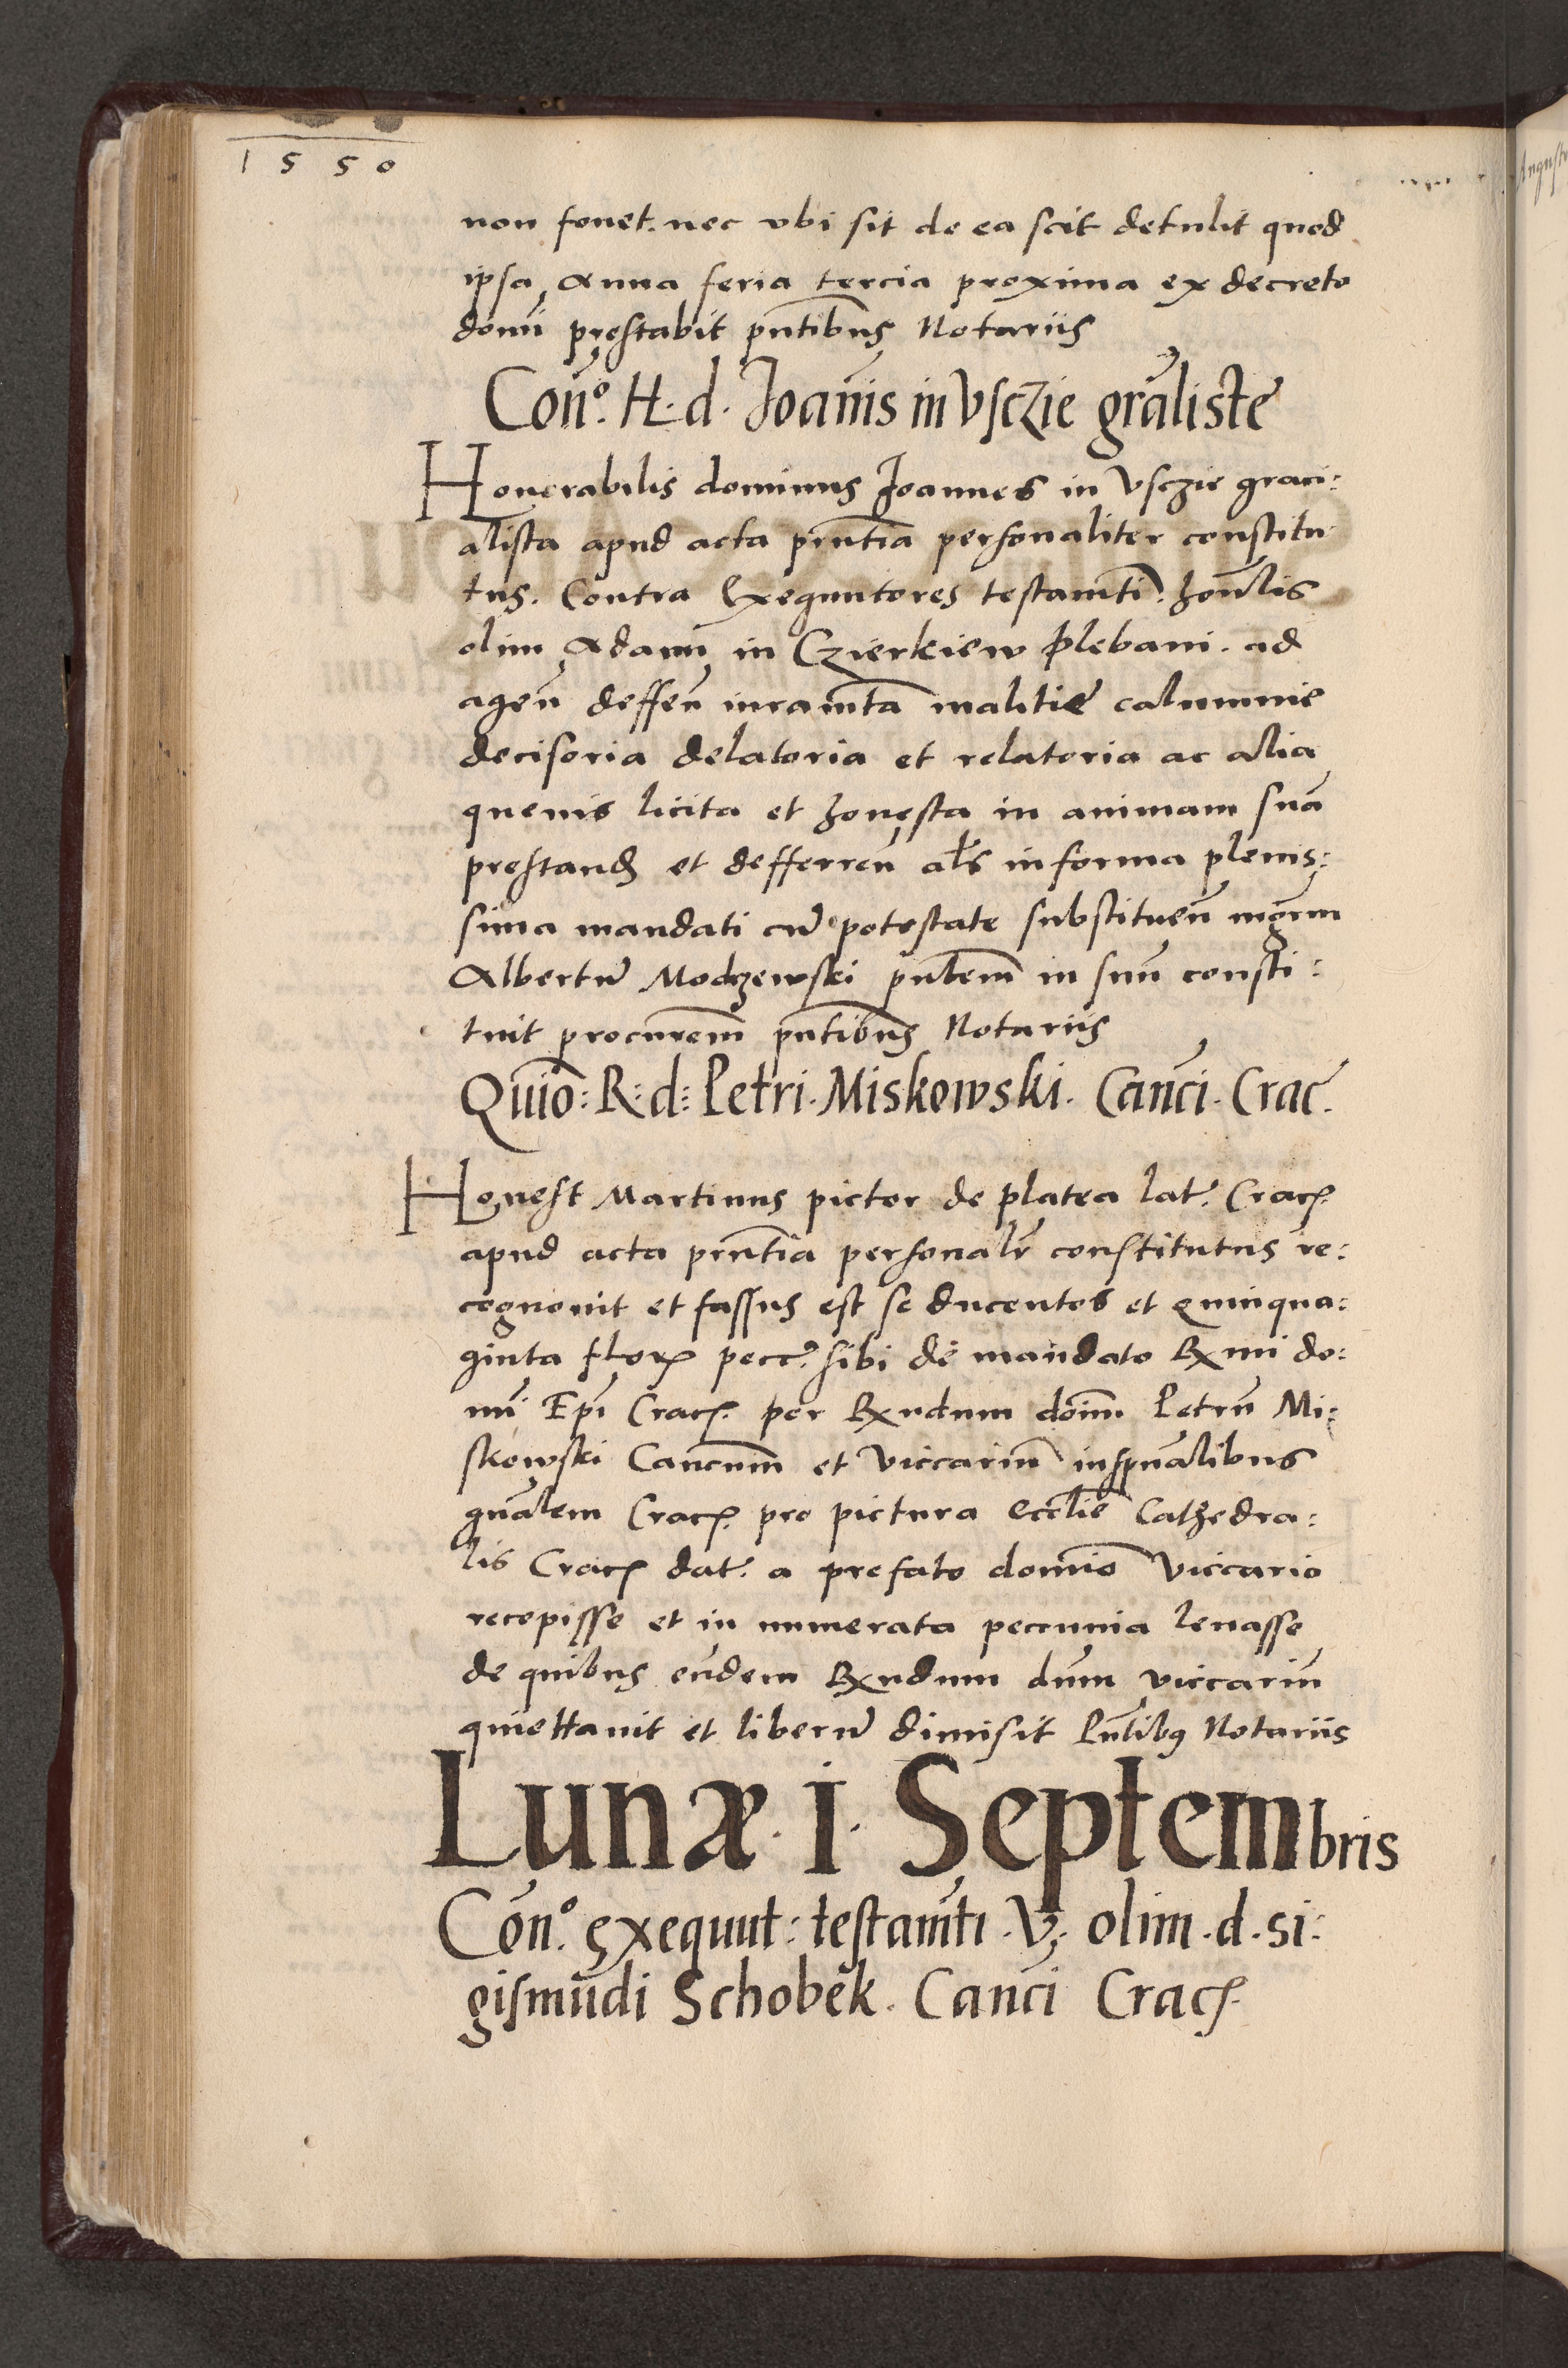 1550
non fouet. nec vbi sit de ea scit detulit quod
ipsa Anna feria tercia proxima ex decreto
domī prestabit pñtibus Notariis
Con͂º. H. d. Joan͂is in Vsczie gr͂aliste
Honorabilis dominus Joannes in Vsczie graci:
alista apud acta pñtia personaliter constitu
tus. Contra Exequutores testam͂ti. hon͂lis
olim Adami in Czierkiew plebani. ad
agen͂ deffen͂ iuram͂ta malitie calumnie
decisoria delatoria et relatoria ac alia
quevis licita et honesta in animam suā
prestand et defferren͂ al͂s in forma plenis:
sima mandati cū potestate substituen͂ mgr͂m
Albertū Modrzewski pn͂tem in suū consti:
tuit procurem͂ pñtibus Notariis
Quio͂: R: d: Petri. Miskowski. Canc͂i. Crac.
Honest Martinus pictor de platea lat. Crac.
apud acta prn͂tia personalr͂ constitutus re:
cognouit et fassus est se ducentos et quinqua:
ginta flor pecc. sibi de mandato Rmi do:
mī Ep͂i Crac. per Rndum doīm Petrū Mi:
skowski Canc͂um et Viccariū in sp͂ualibus
gn͂alem Crac. pro pictura eccl͂ie Cathedra:
lis Crac dat. a prefato domīo Viccario
recepisse et in numerata peccunia leuasse
de quibus eūdem Rndum dn͂m viccariū
quiettauit et liberū dimisit Pn͂tibus Notariis
Lunæ. i. Septembris
Con͂º. exequut: testam͂ti. V. olim. d. si:
gismūdi Schobek. Canc͂i Crac.